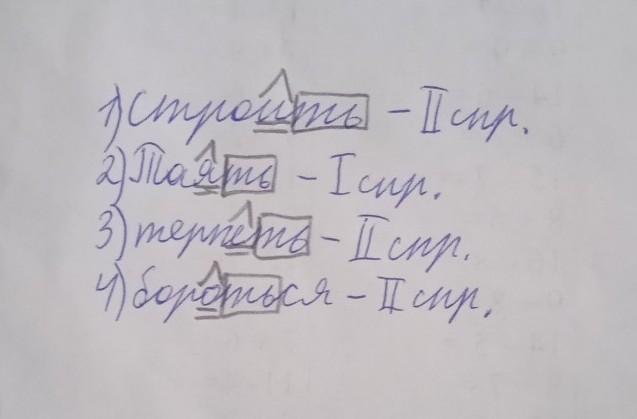 1) строить - II спр.
2) Таять - I спр.
3) терпеть - II спр.
4) бороться - II спр.